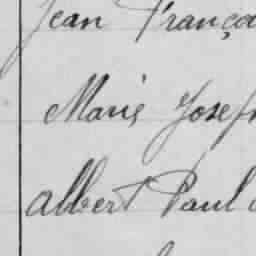 Jean Franço
Marie Josep
Albert Paul